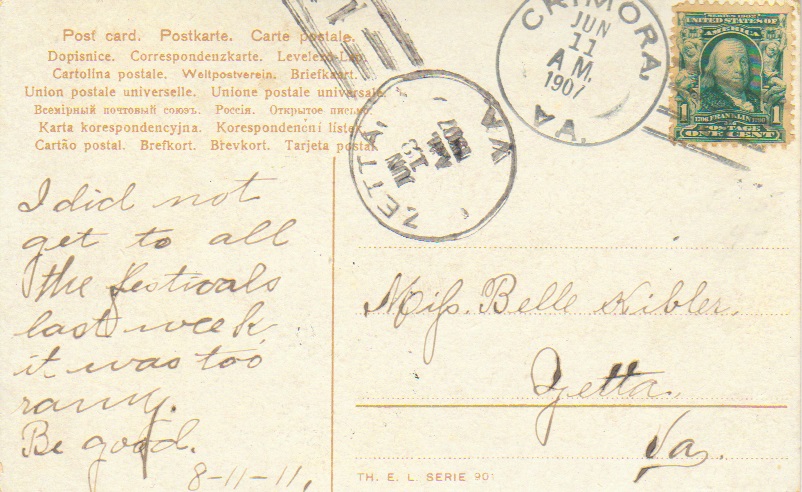 Post card. Postkarte. Carte postale.
Dopisnice. Correspondenzkarte. Levelező-Lap.
Cartolina postale. Weltpostverein. Briefkaart.
Union postale universelle. Unione postale universale.
Всемірный почтовый союзъ. Россія. Открытое письмо.
Karta korespondencyjna. Korespondenční lístek.
Cartão postal. Brefkort. Brevkort. Tarjeta postal
1
ZETTA, VA
JUN
13
AM
1907
CRIMORA, VA.
JUN
11
A.M.
1907
SERIES 1902
UNITED STATES OF
AMERICA
1706 FRANKLIN 1790
1 POSTAGE 1
ONE CENT
I did not
get to all
the festivals
last week
it was too
rainy.
Be good.
8-11-11,
Miss. Belle Kibler.
Zetta.
Va.
TH. E. L. SERIE 901